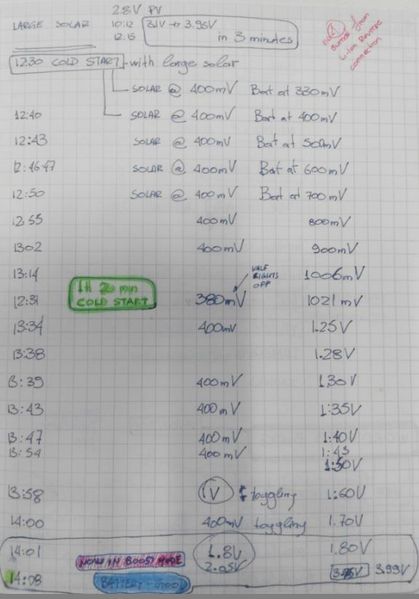 2.8V PV
LARGE SOLAR 10:12 3.1V → 3.95V
12:15 in 3 minutes
burned from
Li-Ion Reverse
connection
12:30 COLD START - with large solar
SOLAR @ 400mV Bat at 330mV
12:40 SOLAR @ 400mV Bat at 400mV
12:43 SOLAR @ 400mV Bat at 500mV
12:46:47 SOLAR @ 400mV Bat at 600mV
12:50 SOLAR @ 400mV Bat at 700mV
12:55 400mV 800mV
1302 400mV 900mV
13:14 1006mV
LIGHTS
OFF
1H 20 min
COLD START
12:31 380mV 1021mV
13:34 400mV 1.25V
13:38 1.28V
13:39 400mV 1.30V
13:43 400mV 1:35V
13:47 400mV 1:40V
13:54 400mV 1:45
1:50V
13:58 1V toggling 1:60V
14:00 400mV toggling 1.70V
14:01 NOW IN BOOST MODE 1.8V 1.80V
2.05V
14:08 BATTERY - GOOD 3.95V 3.99V